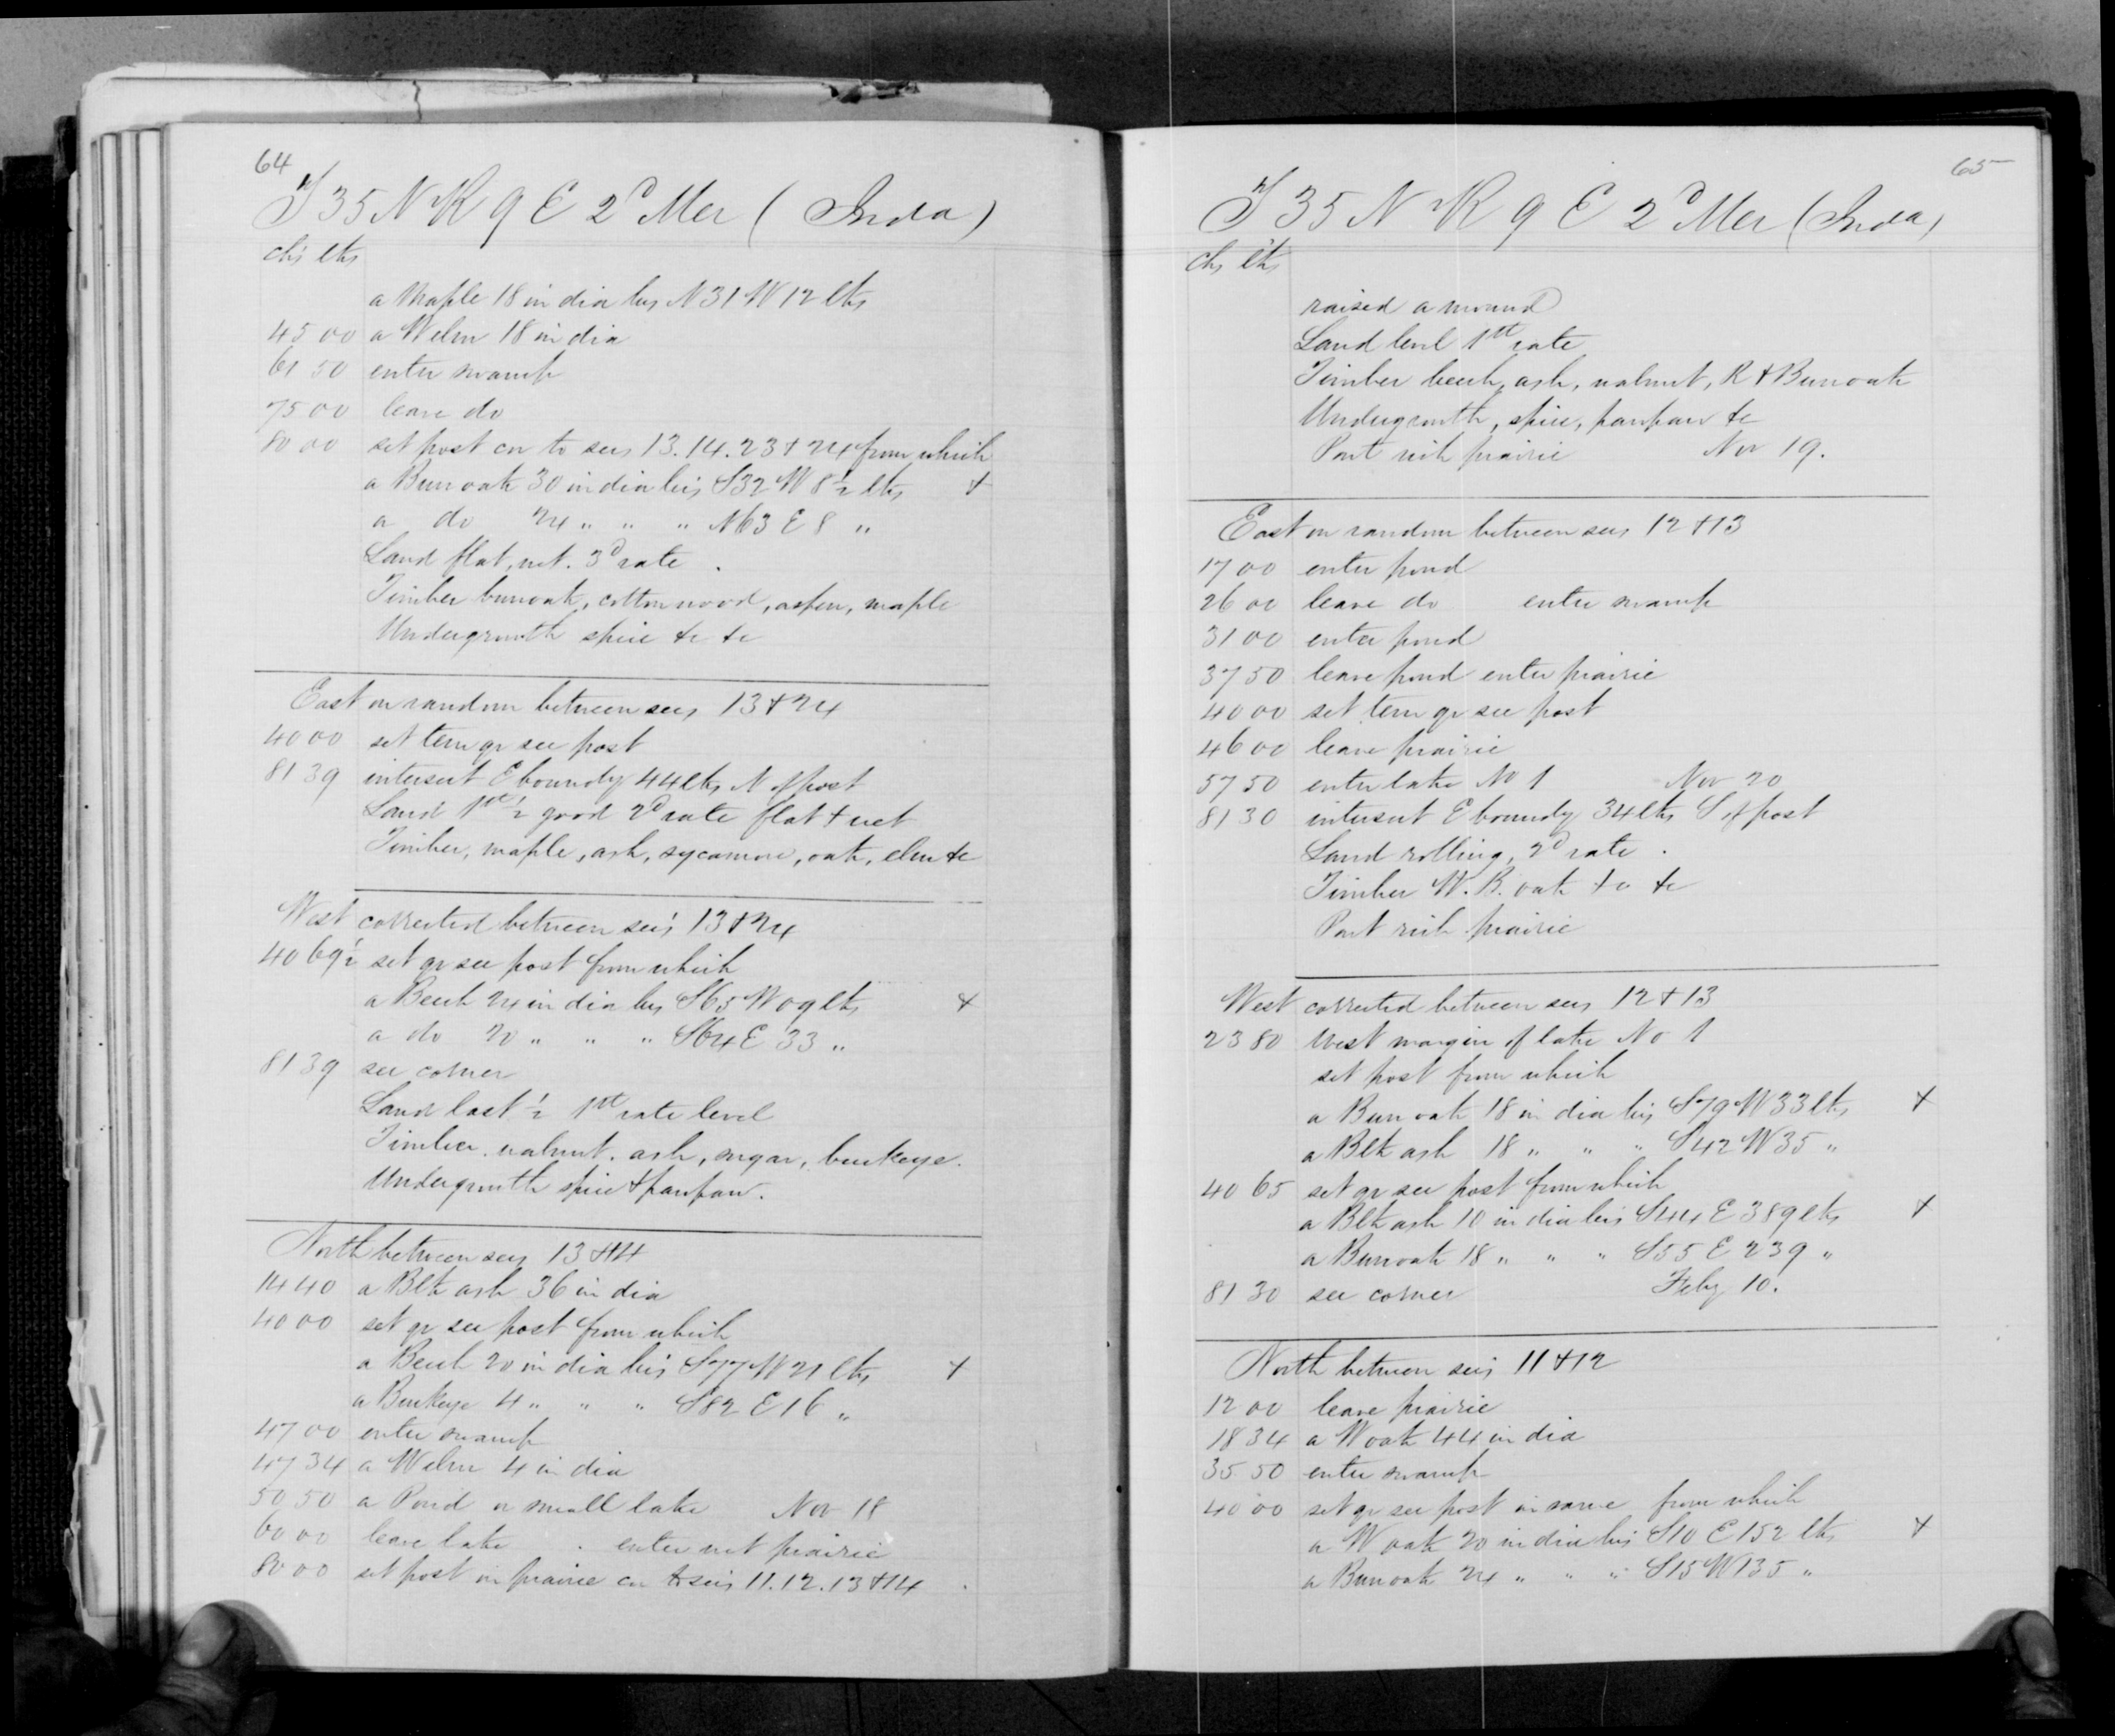 64
T 35 N R 9 E 2d Mer (Inda)
chs lks
a Maple 18 in dia brs N 31 W 12 lks
45 00 a W elm 18 in dia
61 50 enter swamp
75 00 leave do
80 00 set post cor to secs 13. 14. 23 + 24 from which
a Burr oak 30 in dia brs S 32 W 8 1/2 lks +
a do 24 " " " N 63 E 8 "
Land flat, wet. 3d rate
Timber burr oak, cottonwood, aspen, maple
Undergrowth spice &c &c
East on random between secs 13 + 24
40 00 set tem qr sec post
81 39 intersect E boundy 44 lks N of post
Land 1st 1/2 good 2d rate flat + wet
Timber, maple, ash, sycamore, oak, elm &c
West corrected between secs 13 + 24
40 69 1/2 set qr sec post from which
a Beech 24 in dia brs S 65 W 09 lks +
a do 20 " " " S 64 E 33 "
81 39 sec corner
Land last 1/2 1st rate level
Timber. walnut. ash, sugar, buckeye.
Undergrowth spice + pawpaw.
North between secs 13 + 14
14 40 a Blk ash 36 in dia
40 00 set qr sec post from which
a Beech 20 in dia brs S 77 W 21 lks +
a Buckeye 4 " " " S 82 E 16 "
47 00 enter swamp
47 34 a W elm 4 in dia
50 50 a Pond or small lake Nov 18
60 00 leave lake . enter wet prairie
80 00 set post in prairie cor to secs 11. 12. 13 + 14
65
T 35 N R 9 E 2d Mer (Inda)
chs lks
raised a mound
Land level 1st rate
Timber beech, ash, walnut, R + Burr oak
Undergrowth, spice, pawpaw &c
Part rich prairie Nov 19.
East on random between secs 12 + 13
17 00 enter pond
26 00 leave do enter swamp
31 00 enter pond
37 50 leave pond enter prairie
40 00 set tem qr sec post
46 00 leave prairie
57 50 enter lake No 1 Nov 20
81 30 intersect E boundy 34 lks S of post
Land rolling, 2d rate.
Timber W. B. oak &c &c
Part rich prairie
West corrected between secs 12 + 13
23 80 West margin of lake No 1
set post from which
a Burr oak 18 in dia brs S 79 W 33 lks +
a Blk ash 18 " " " S 42 W 35 "
40 65 set qr sec post from which
a Blk ash 10 in dia brs S 44 E 389 lks +
a Burr oak 18 " " " S 55 E 239 "
81 30 sec corner Feby 10.
North between secs 11 + 12
12 00 leave prairie
18 34 a W oak 44 in dia
35 50 enter swamp
40 00 set qr sec post in same from which
a W oak 20 in dia brs S 10 E 152 lks +
a Burr oak 24 " " " S 15 W 135 "